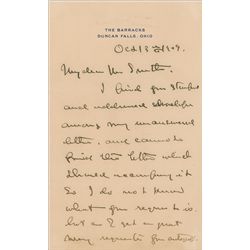 THE BARRACKS
DUNCAN FALLS, OHIO
Oct 13 1909.
My dear Mr Smith.
I find you stamped
and addressed envelope
among my unanswered
letters, and cannot
find the letter which
should accompany it
So I do not know
what your request is,
but as I get a great
many requests for